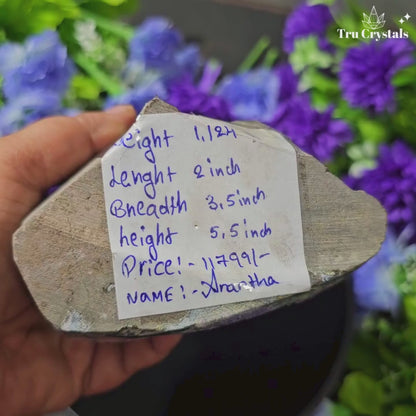 Tru Crystals
eight 1,124
Lenght 2 inch
Breadth 3,5 inch
height 5,5 inch
Price:- 1,799/-
NAME:- Anantha